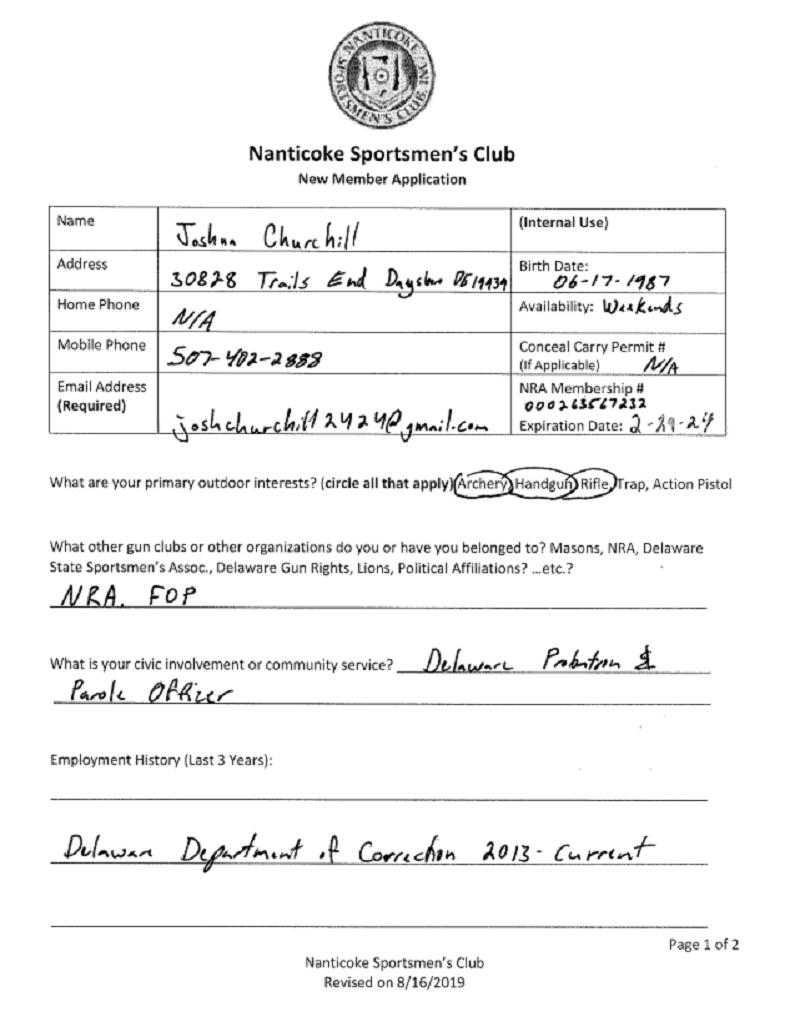 NANTICOKE SPORTSMEN'S CLUB, INC.
Nanticoke Sportsmen's Club
New Member Application
Name Joshua Churchill (Internal Use)
Address 30828 Trails End Dagsboro DE 19939 Birth Date: 06-17-1987
Home Phone N/A Availability: Weekends
Mobile Phone 507-402-2888 Conceal Carry Permit # (If Applicable) N/A
Email Address (Required) joshchurchill2424@gmail.com NRA Membership # 000263567232
Expiration Date: 2-29-24
What are your primary outdoor interests? (circle all that apply) Archery, Handgun, Rifle, Trap, Action Pistol
What other gun clubs or other organizations do you or have you belonged to? Masons, NRA, Delaware
State Sportsmen's Assoc., Delaware Gun Rights, Lions, Political Affiliations? ...etc.?
NRA, FOP
What is your civic involvement or community service? Delaware Probation &
Parole Officer
Employment History (Last 3 Years):
Delaware Department of Correction 2013 - Current
Page 1 of 2
Nanticoke Sportsmen's Club
Revised on 8/16/2019